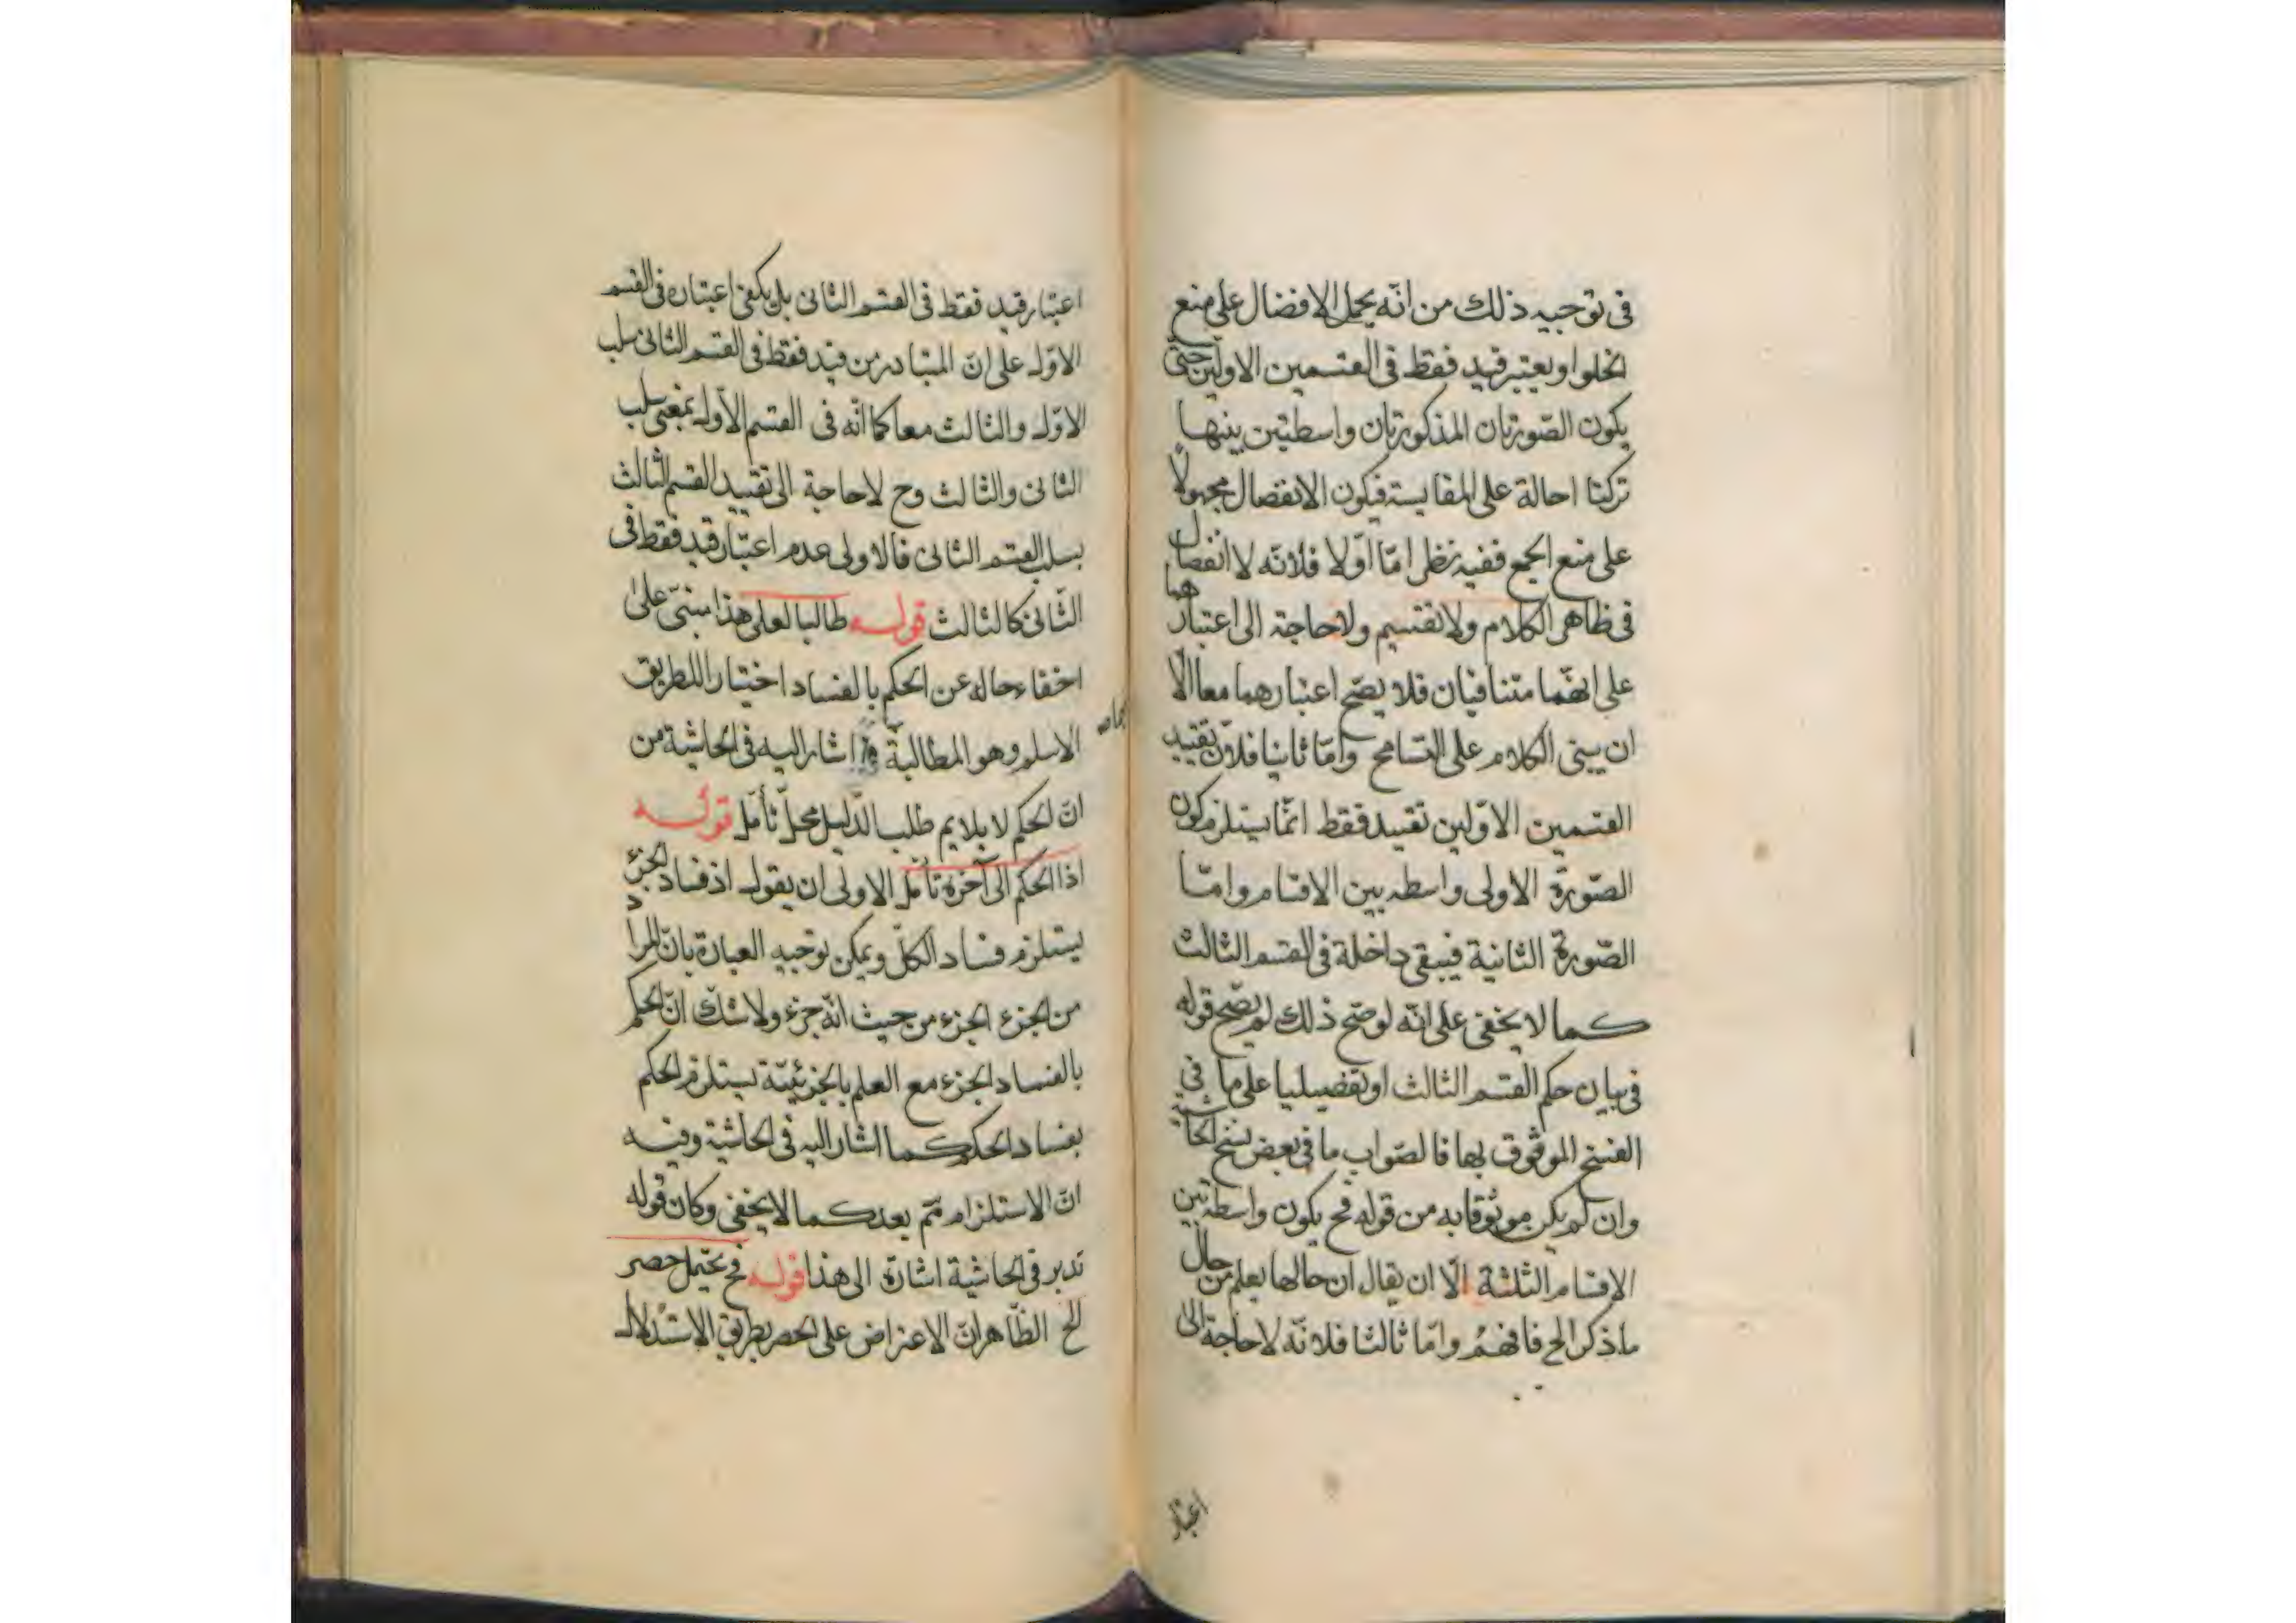 فى توجيه ذلك من انّه يحمل الافضال على منع
الخلو او يعتبر قيد فقط فى القسمين الاولين حتى
يكون الصّورتان المذكورتان واسطتين بينها
تركنا احالة على المقايسة فيكون الانفصال محمولاً
على منع الجمع ففيه نظر امّا اوّلا فلانّه لا انفصال
فى ظاهر الكلام ولا تقسيم ولا حاجة الى اعتبارهما
على انّهما متنافيان فلا يصحّ اعتبارهما معا الّا
ان يبنى الكلام على التسامح وامّا ثانيا فلانّ تقييد
القسمين الاوّلين تقييد فقط انّما يستلزم كون
الصّورة الاولى واسطه بين الاقسام وامّا
الصّورة الثانية فيبقى داخلة فى القسم الثالث
كما لا يخفى على انّه لو صحّ ذلك لم يصحّ قوله
فى بيان حكم القسم الثالث او تفضيليا على ما فى
النسخ الموثوق بها فالصّواب ما فى بعض نسخ الحاشية
وان لم يكن موثوقا به من قوله فح يكون واسطه بين
الاقسام الثلثة الّا ان يقال ان حالها يعلم من حال
ما ذكر الح فافهم وامّا ثالثا فلانّه لا حاجة الى
اعتبار
اعتبار قيد فقط فى القسم الثانى بل يكفى اعتباره فى القسم
الاوّل على انّ المتبادر من قيد فقط فى القسم الثانى سلب
الاوّل والثالث معا كما انّه فى القسم الاوّل بمعنى سلب
الثانى والثالث وح لا حاجة الى تقييد القسم الثالث
بسلب القسم الثانى فالاولى عدم اعتبار قيد فقط فى
الثّانى كالثالث قوله طالبا لعلى هذا مبنىّ على
اخفاء حاله عن الحكم بالفساد اختيارا للطريق
الاسلم وهو المطالبة اشار اليه فى الحاشية من
انّ الحكم لا يلايم طلب الدّليل محلّ تأمّل قوله
اذا الحكم الى آخره تأمّل الاولى ان يقول اذ فساد الجزء
يستلزم فساد الكلّ ويمكن توجيه العبارة بانّ المراد
من الجزء الجزء من حيث انّه جزء ولا شكّ انّ الحكم
بالفساد الجزء مع العلم بالجزئيّة يستلزم الحكم
بفساد الحكم كما اشار اليه فى الحاشية وفيه
انّ الاستلزام مم بعد كما لا يخفى وكان قوله
تدبر فى الحاشية اشارة الى هذا قوله فح يحتمل حصر
الح الظّاهر انّ الاعتراض على الحصر بطريق الاستدلال